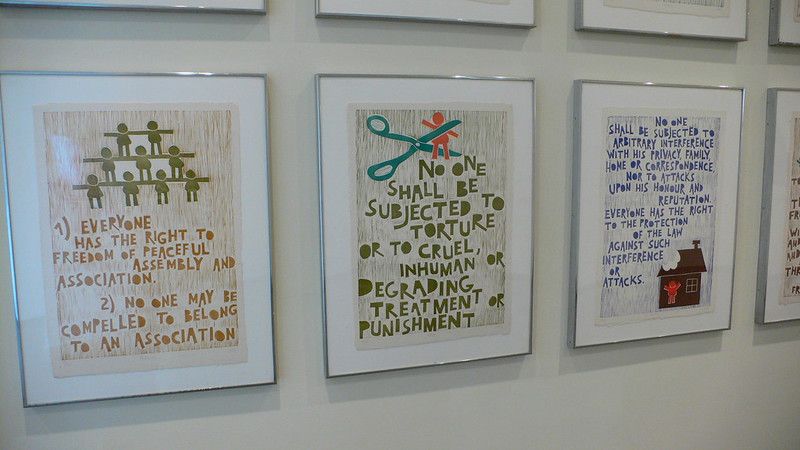 1) EVERYONE
HAS THE RIGHT TO
FREEDOM OF PEACEFUL
ASSEMBLY AND
ASSOCIATION.
2) NO ONE MAY BE
COMPELLED TO BELONG
TO AN ASSOCIATION
NO ONE
SHALL BE
SUBJECTED TO
TORTURE
OR TO CRUEL,
INHUMAN, OR
DEGRADING
TREATMENT OR
PUNISHMENT
NO ONE
SHALL BE SUBJECTED TO
ARBITRARY INTERFERENCE
WITH HIS PRIVACY, FAMILY,
HOME OR CORRESPONDENCE,
NOR TO ATTACKS
UPON HIS HONOUR AND
REPUTATION.
EVERYONE HAS THE RIGHT
TO THE PROTECTION
OF THE LAW
AGAINST SUCH
INTERFERENCE
OR
ATTACKS.